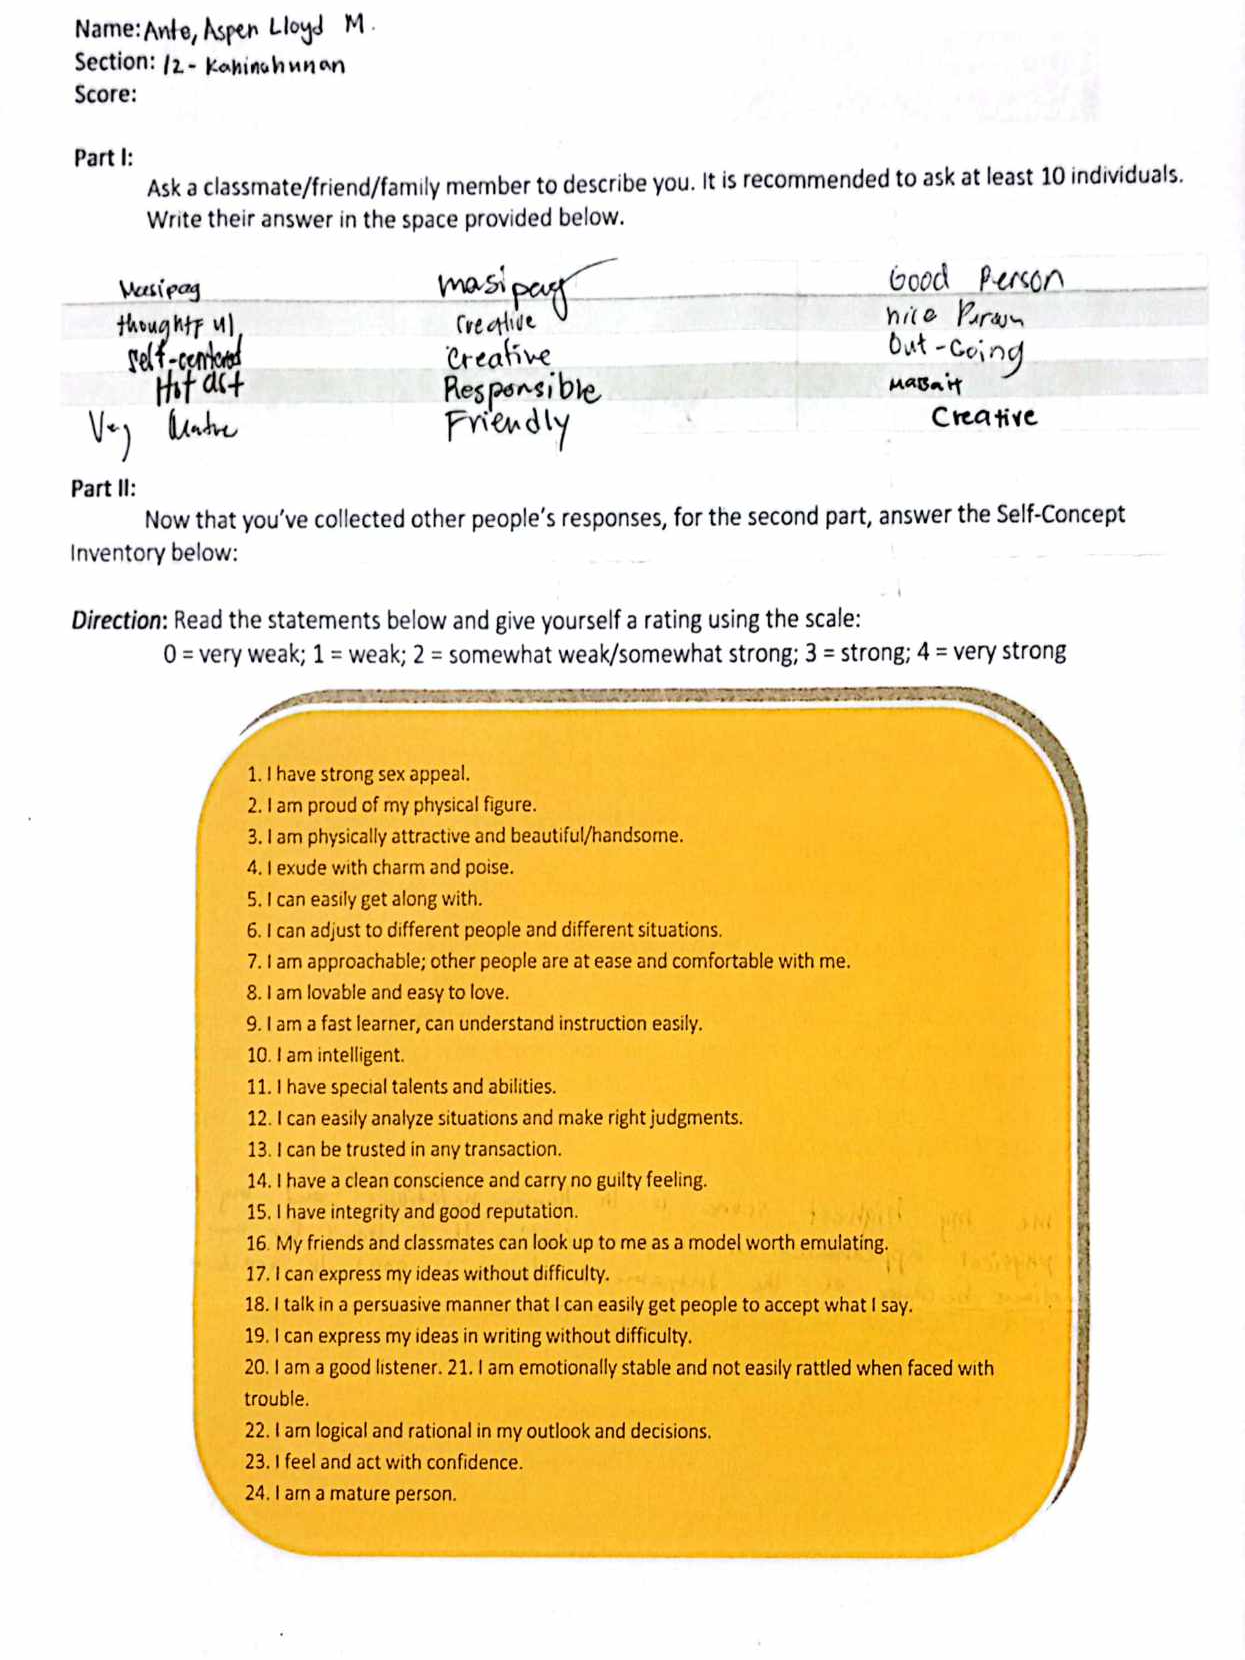 Name: Ante, Aspen Lloyd M.
Section: 12 - Kahinahunan
Score:
Part I:
Ask a classmate/friend/family member to describe you. It is recommended to ask at least 10 individuals.
Write their answer in the space provided below.
Masipag masipag Good Person
thoughtful creative nice Person
self-centered Creative Out-Going
Responsible Mabait
Friendly Creative
Part II:
Now that you've collected other people's responses, for the second part, answer the Self-Concept
Inventory below:
Direction: Read the statements below and give yourself a rating using the scale:
0 = very weak; 1 = weak; 2 = somewhat weak/somewhat strong; 3 = strong; 4 = very strong
1. I have strong sex appeal.
2. I am proud of my physical figure.
3. I am physically attractive and beautiful/handsome.
4. I exude with charm and poise.
5. I can easily get along with.
6. I can adjust to different people and different situations.
7. I am approachable; other people are at ease and comfortable with me.
8. I am lovable and easy to love.
9. I am a fast learner, can understand instruction easily.
10. I am intelligent.
11. I have special talents and abilities.
12. I can easily analyze situations and make right judgments.
13. I can be trusted in any transaction.
14. I have a clean conscience and carry no guilty feeling.
15. I have integrity and good reputation.
16. My friends and classmates can look up to me as a model worth emulating.
17. I can express my ideas without difficulty.
18. I talk in a persuasive manner that I can easily get people to accept what I say.
19. I can express my ideas in writing without difficulty.
20. I am a good listener. 21. I am emotionally stable and not easily rattled when faced with
trouble.
22. I am logical and rational in my outlook and decisions.
23. I feel and act with confidence.
24. I am a mature person.